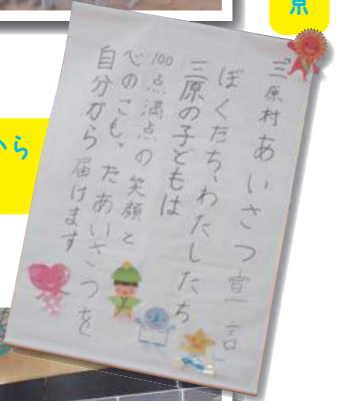 三原村あいさつ宣言
ぼくたち、わたしたち
三原の子どもは
100点満点の笑顔と
心のこもったあいさつを
自分から届けます
から
京